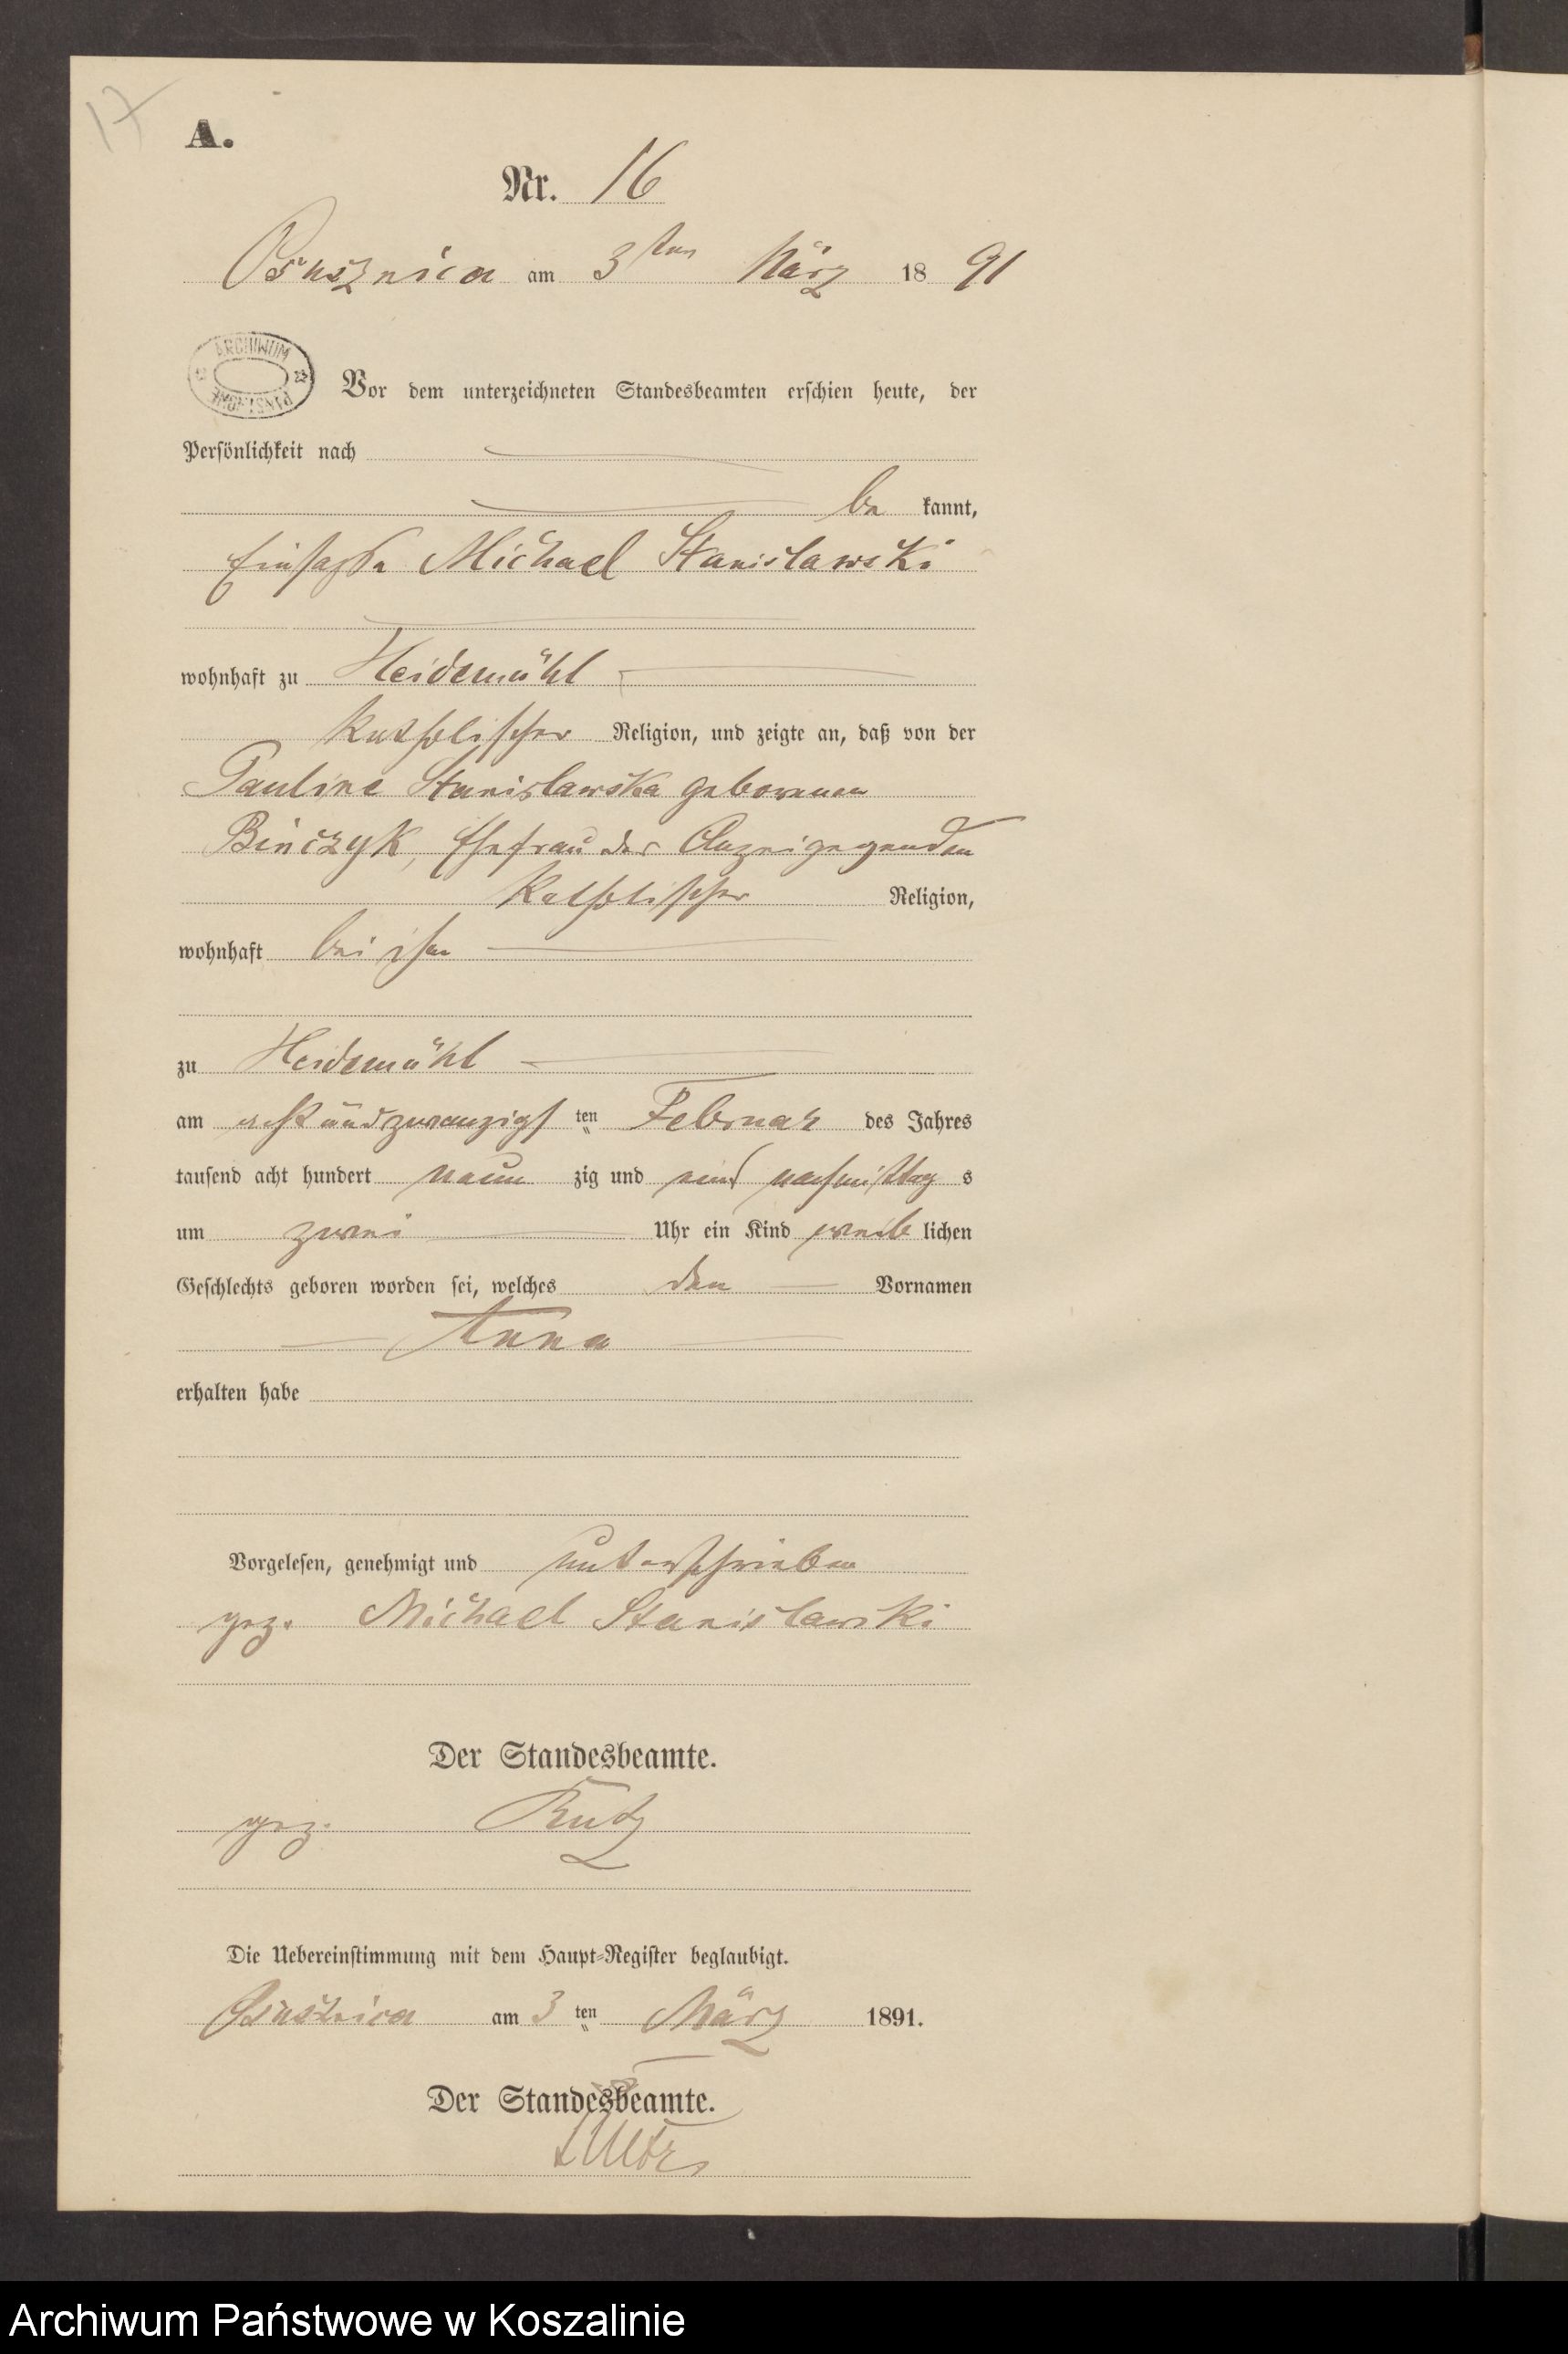 17
A.
Nr. 16
Osusznica am 3ten März 1891
ARCHIWUM PAŃSTWOWE
Vor dem unterzeichneten Standesbeamten erschien heute, der
Persönlichkeit nach
be kannt,
Michael Stanislawski
wohnhaft zu Heidemühl
katholischer Religion, und zeigte an, daß von der
Pauline Stanislawska geborenen
Binczyk, Ehefrau des Anzeigenden
katholischer Religion,
wohnhaft bei ihm
zu Heidemühl
am achtundzwanzigsten Februar des Jahres
tausend acht hundert neun zig und eins nachmittag s
um zwei Uhr ein Kind weib lichen
Geschlechts geboren worden sei, welches den Vornamen
Anna
erhalten habe
Vorgelesen, genehmigt und unterschrieben
gez. Michael Stanislawski
Der Standesbeamte.
gez.
Die Uebereinstimmung mit dem Haupt-Register beglaubigt.
Osusznica am 3 ten März 1891.
Der Standesbeamte.
Archiwum Państwowe w Koszalinie